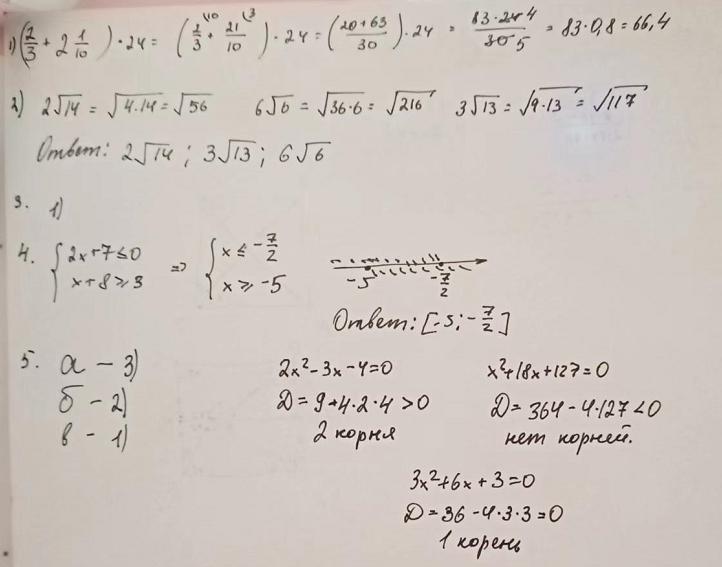 1) (2/3 + 2 1/10) · 24 = (2/3 \10 + 21/10 \3) · 24 = (20+63/30) · 24 = 83·24 4/30 5 = 83·0,8 = 66,4
2) 2√14 = √4·14 = √56 6√6 = √36·6 = √216 3√13 = √9·13 = √117
Ответ: 2√14 ; 3√13 ; 6√6
3. 1)
4. { 2x+7≤0 x+8≥3 => { x ≤ -7/2 x ≥ -5
-5 -7/2
Ответ: [-5; -7/2]
5. а – 3)
б – 2)
в – 1)
2x²-3x-4=0
D = 9+4·2·4 >0
2 корня
x²+18x+127=0
D = 364-4·127<0
нет корней.
3x²+6x+3=0
D=36-4·3·3=0
1 корень